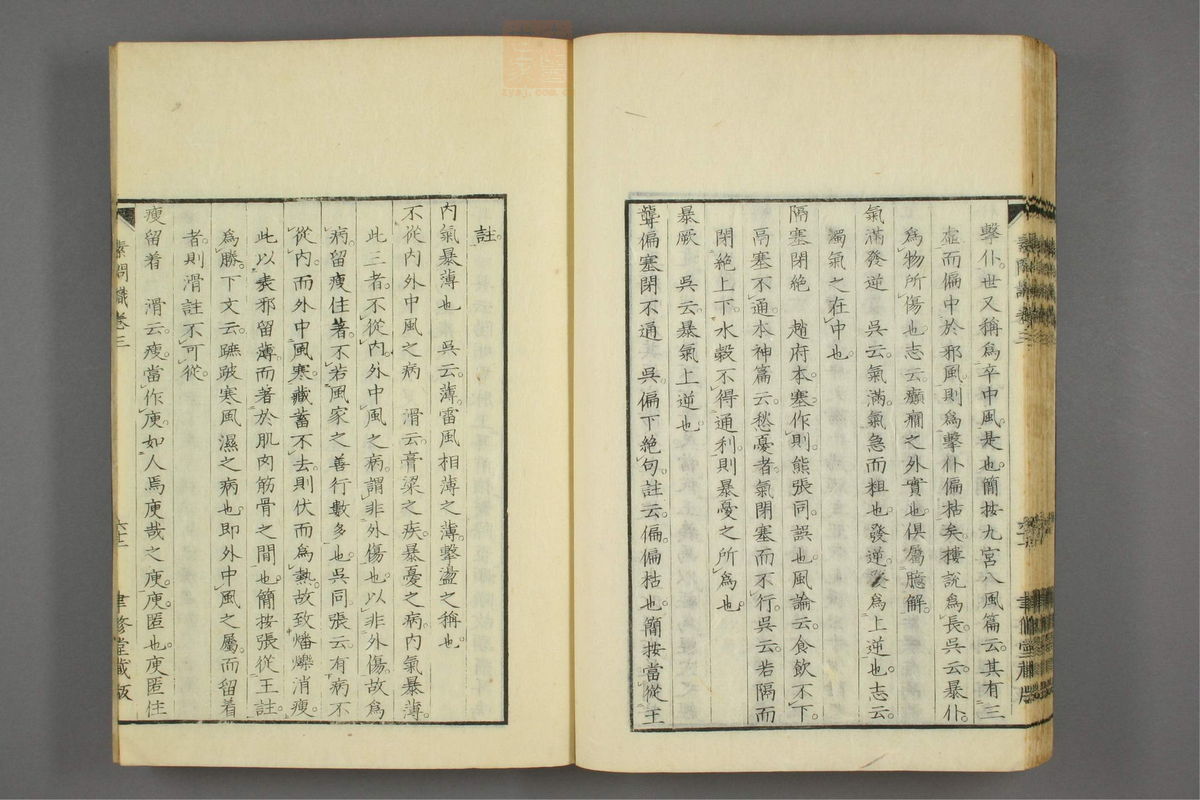 擊仆。世又稱爲卒中風是也。簡按九宮八風篇云。其有三
虛而偏中於邪風則爲擊仆偏枯矣。樓説爲長。吳云暴仆。
爲物所傷也。志云癲癇之外實也。俱屬臆解。
氣滿發逆 吳云。氣滿。氣急而粗也。發逆。發爲上逆也。志云。
濁氣之在中也。
隔塞閉絶 趙府本。塞作則。熊張同。誤也。風論云。食飮不下。
鬲塞不通。本神篇云。愁憂者。氣閉塞而不行。吳云。若隔而
閉絶上下。水穀不得通利。則暴憂之所爲也。
暴厥 吳云暴氣上逆也。
聾偏塞閉不通 吳。偏下絶句。註云。偏。偏枯也。簡按當從王
素問識卷三
六十二
聿修堂藏版
註。
内氣暴薄也 吳云。薄。雷風相薄之薄。擊盪之稱也。
不從内外中風之病 滑云。膏粱之疾。暴憂之病。内氣暴薄。
此三者。不從内。外中風之病。謂非外傷也。以非外傷。故爲
病。留瘦住著。不若風家之善行數多也。吳同。張云。有病不
從内。而外中風寒。藏蓄不去。則伏而爲熱。故致燔爍消瘦。
此以表邪留薄。而著於肌肉筋骨之間也。簡按張從王註。
爲勝。下文云。蹠跛寒風濕之病也。即外中風之屬。而留着
者。則滑註不可從。
瘦留着 滑云。瘦。當作廋。如人焉廋哉之廋。廋。匿也。廋匿住
素問識卷三
六十二
聿修堂藏版